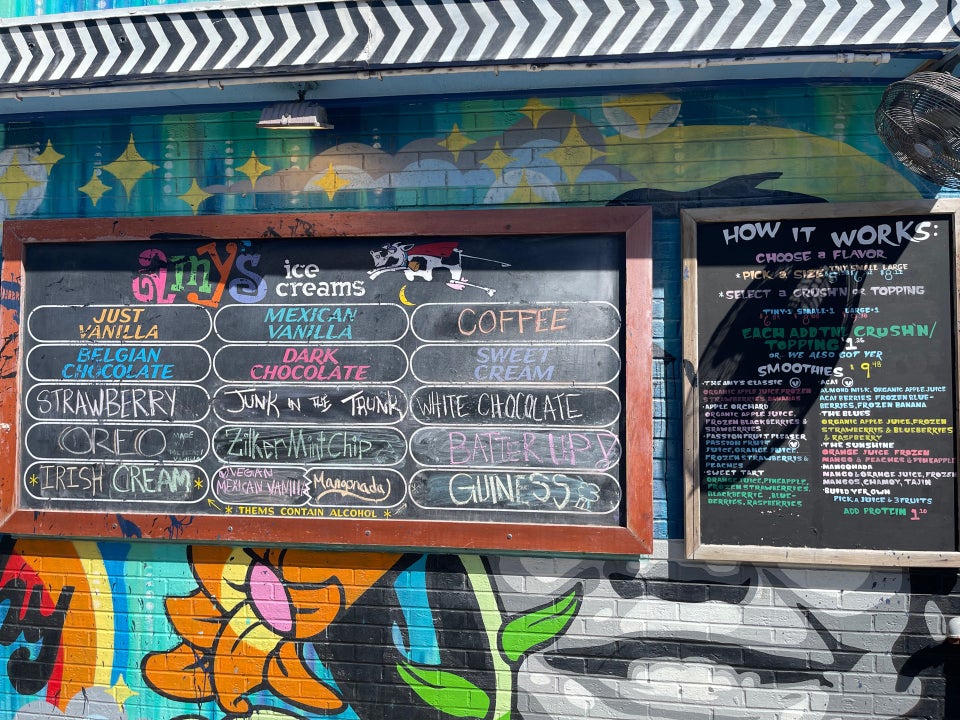 AMY'S
ice
creams
JUST
VANILLA
MEXICAN
VANILLA
COFFEE
BELGIAN
CHOCOLATE
DARK
CHOCOLATE
SWEET
CREAM
STRAWBERRY
JUNK IN THE TRUNK
WHITE CHOCOLATE
OREO
MADE
ZILKER MINT CHIP
BATTER UP!
*IRISH CREAM*
VEGAN
MEXICAN VANILLA
Mangonada
GUINESS
* THEMS CONTAIN ALCOHOL *
HOW IT WORKS:
CHOOSE a FLAVOR
*PICK a SIZE
TINY SMALL LARGE
*SELECT a CRUSH'N OR TOPPING
TINY+1 SMALL+1 LARGE+1
EACH ADDTNL CRUSH'N/
TOPPING
OR WE ALSO GOT YER
SMOOTHIES $9.48
·THE AMY'S CLASSIC
ORGANIC APPLE JUICE
STRAWBERRIES, BANANAS
·APPLE ORCHARD
ORGANIC APPLE JUICE,
FROZEN BLACKBERRIES &
STRAWBERRIES
·PASSION FRUIT PLEASER
PASSION FRUIT
JUICE, ORANGE JUICE,
FROZEN STRAWBERRYS &
PEACHES
·SWEET TART
ORANGE JUICE, PINEAPPLE,
FROZEN STRAWBERRIES,
BLACKBERRIE, BLUE-
BERRIES, RASPBERRIES
·ACAI
ALMOND MILK, ORGANIC APPLE JUICE
ACAI BERRIES, FROZEN BLUE-
BERRIES, FROZEN BANANA
·THE BLUES
ORGANIC APPLE JUICE, FROZEN
STRAWBERRIES & BLUEBERRIES
& RASPBERRY
·THE SUNSHINE
ORANGE JUICE FROZEN
MANGO & PEACHES & PINEAPPLE
·MANGONADA
MANGO & ORANGE JUICE, FROZEN
MANGOS, CHAMOY, TAJIN
·BUILD YER OWN
PICK A JUICE & 3 FRUITS
ADD PROTEIN